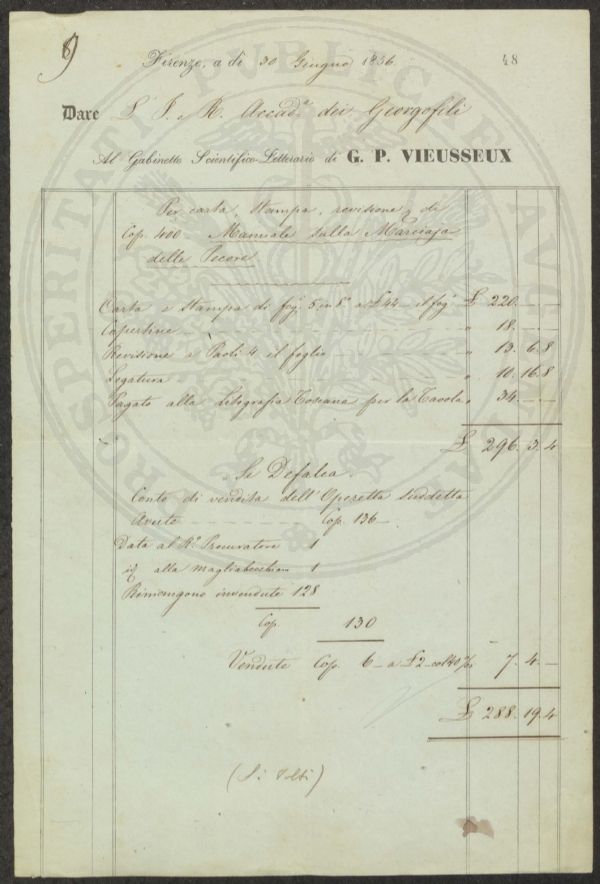 8)
Firenze, a dì 30 Giugno 1836
48
Dare L' I. e R. Accad.a dei Georgofili
Al Gabinetto Scientifico-Letterario di G. P. VIEUSSEUX
Per carta, stampa, revisione, di
Cop. 400 Manuale sulla Marciaja
delle Pecore
Carta e stampa di fog. 5 in 8.o a £ 44 – il fog. £ 220. – –
Copertine " 18. – –
Revisione a Paoli 4 il foglio " 13. 6. 8
Legatura " 10. 16. 8
Pagato alla Litografia Toscana per la Tavola " 34. – –
£ 296. 3. 4
Si Defalca
Conto di vendita dell' Operetta suddetta
Avute Cop. 136 –
Data al R.o Procuratore 1
id. alla Magliabechiana 1
Rimangono invendute 128
Cop. 130
Vendute Cop. 6 – a £ 2 – col 40 % 7. 4. –
£ 288. 19. 4
(Si Volti)
PROSPERITATI PUBLICAE AUGENDAE